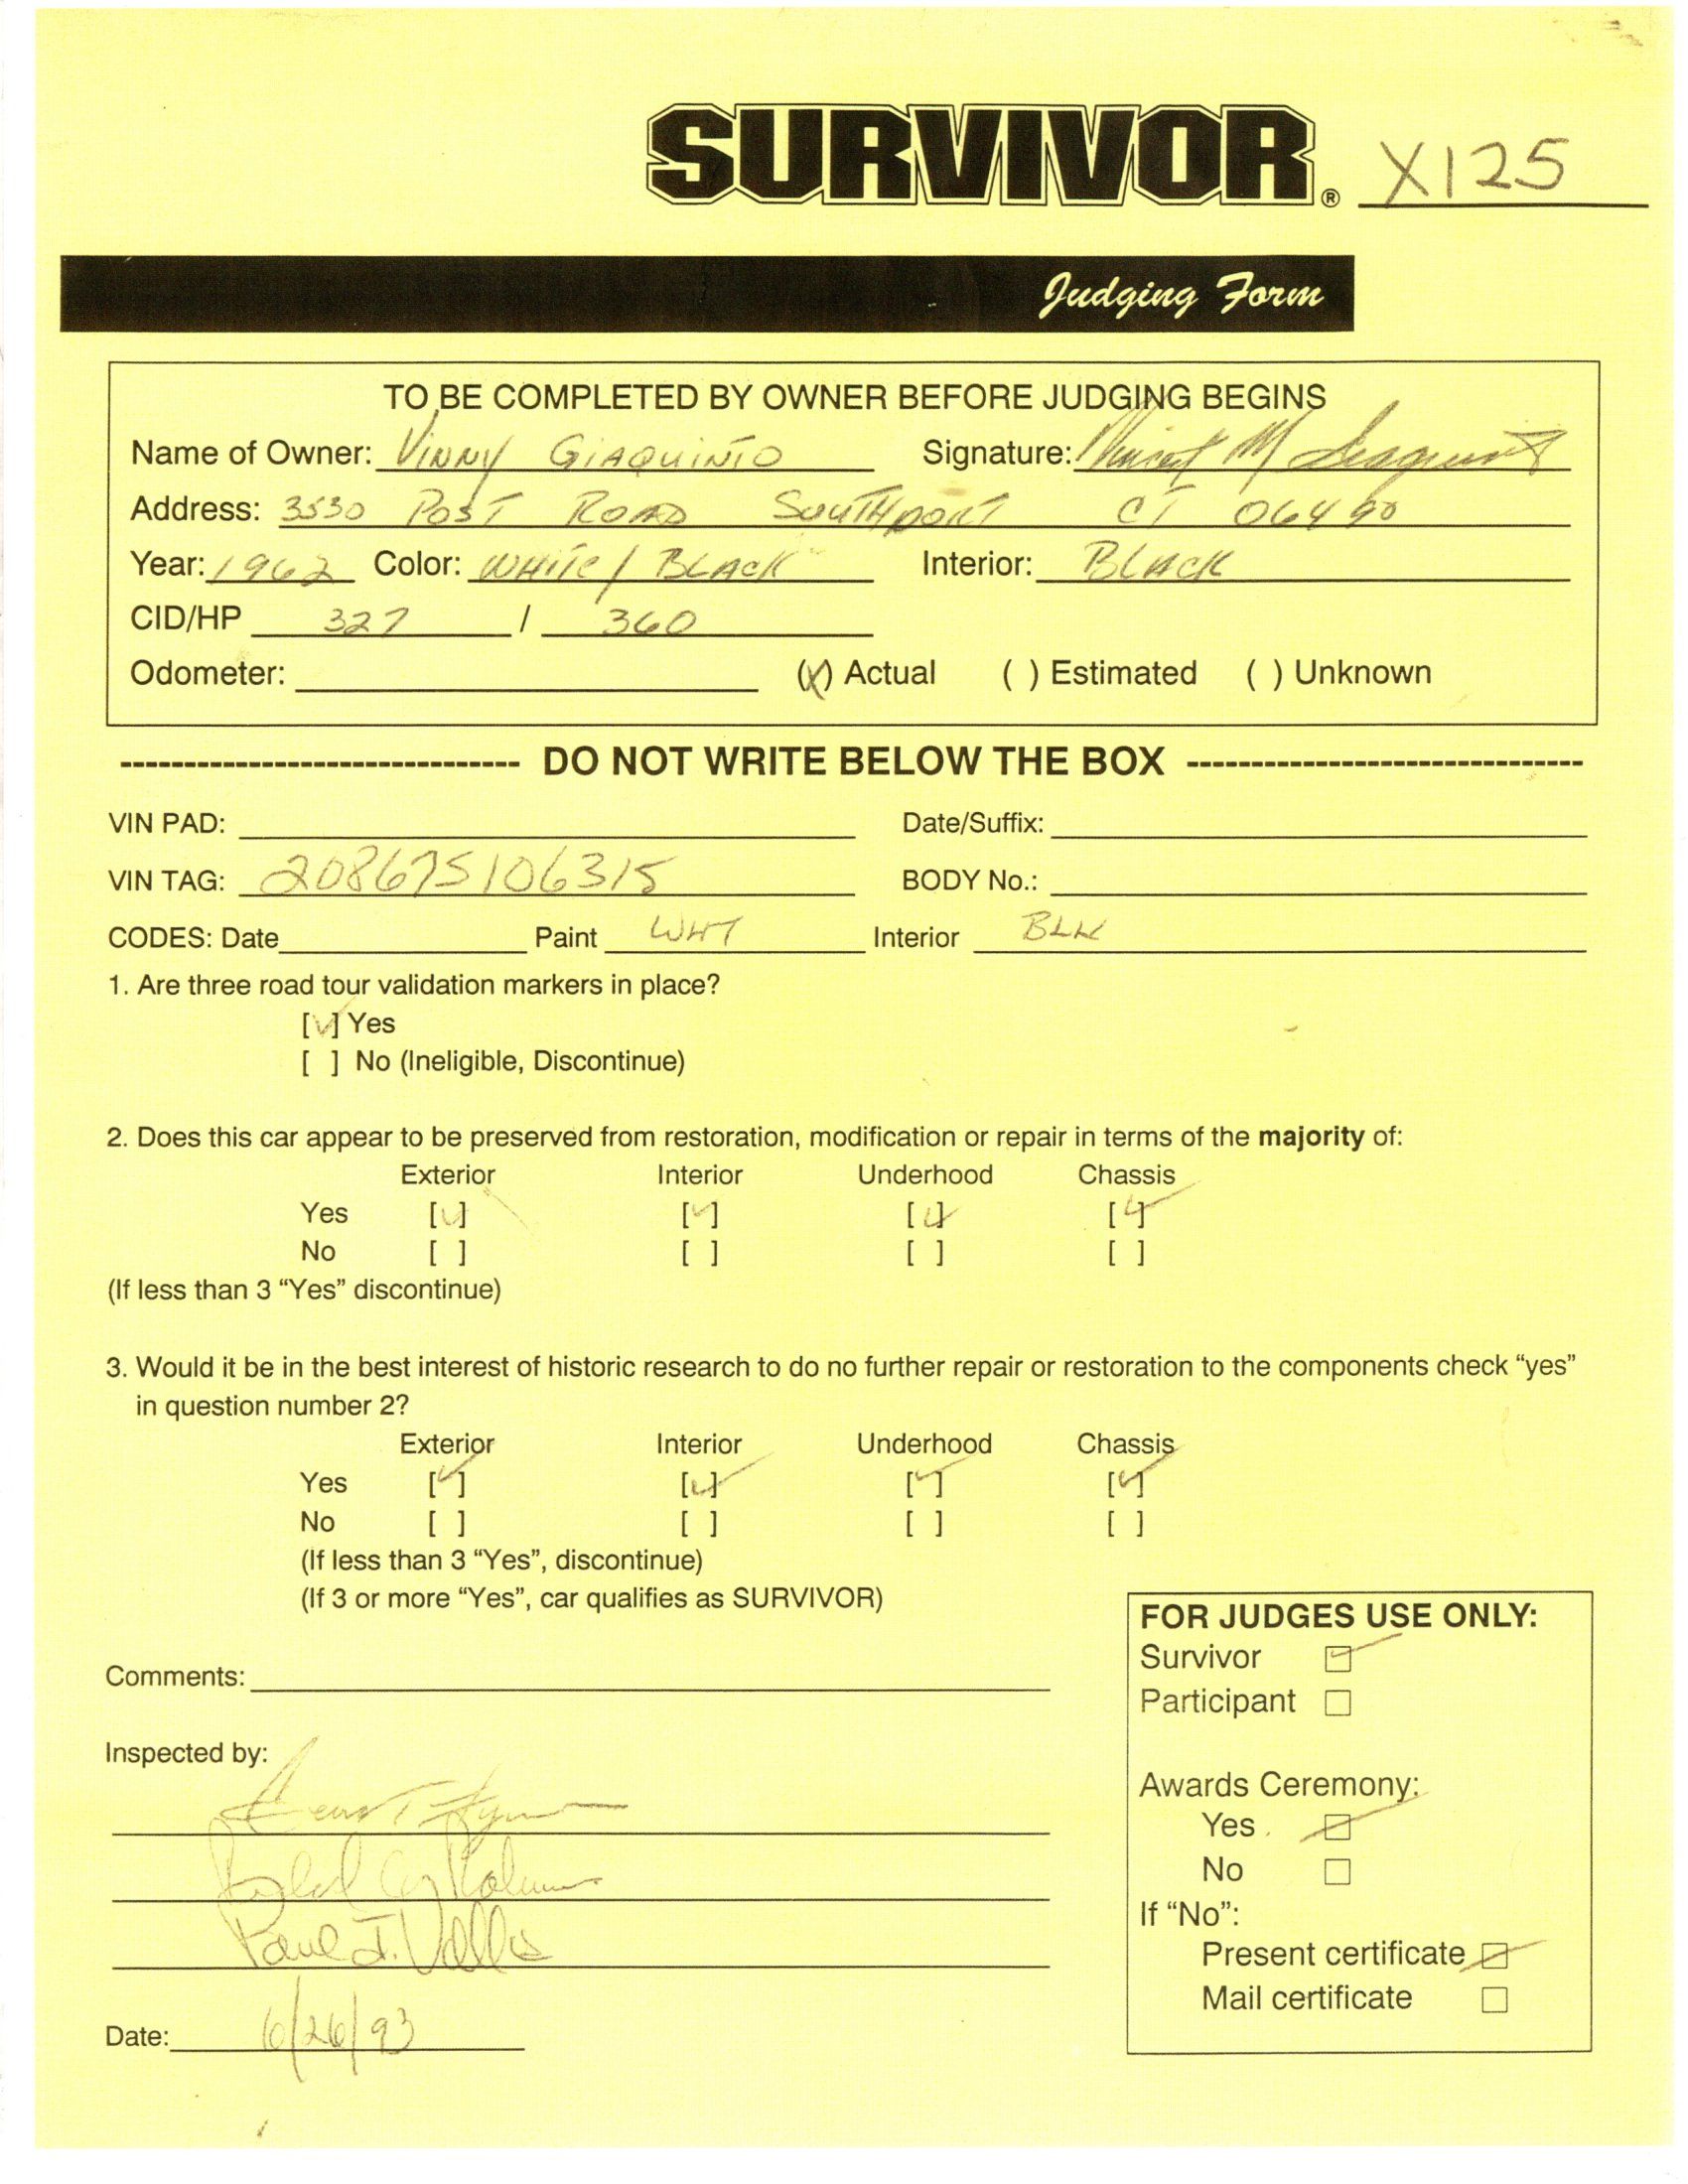 SURVIVOR® X125
Judging Form
TO BE COMPLETED BY OWNER BEFORE JUDGING BEGINS
Name of Owner: VINNY GIAQUINTO Signature: Vincent M Giaquinto
Address: 3530 POST ROAD SOUTHPORT CT 06490
Year: 1962 Color: WHITE / BLACK Interior: BLACK
CID/HP 327 / 360
Odometer: (X) Actual ( ) Estimated ( ) Unknown
DO NOT WRITE BELOW THE BOX
VIN PAD: Date/Suffix:
VIN TAG: 20867S106315 BODY No.:
CODES: Date Paint WHT Interior BLK
1. Are three road tour validation markers in place?
[✓] Yes
[ ] No (Ineligible, Discontinue)
2. Does this car appear to be preserved from restoration, modification or repair in terms of the majority of:
Exterior Interior Underhood Chassis
Yes [✓] [✓] [✓] [✓]
No [ ] [ ] [ ] [ ]
(If less than 3 “Yes” discontinue)
3. Would it be in the best interest of historic research to do no further repair or restoration to the components check “yes”
in question number 2?
Exterior Interior Underhood Chassis
Yes [✓] [✓] [✓] [✓]
No [ ] [ ] [ ] [ ]
(If less than 3 “Yes”, discontinue)
(If 3 or more “Yes”, car qualifies as SURVIVOR)
Comments:
Inspected by:
Paul J.
Date: 6/26/93
FOR JUDGES USE ONLY:
Survivor ☑
Participant ☐
Awards Ceremony:
Yes ☑
No ☐
If “No”:
Present certificate ☑
Mail certificate ☐